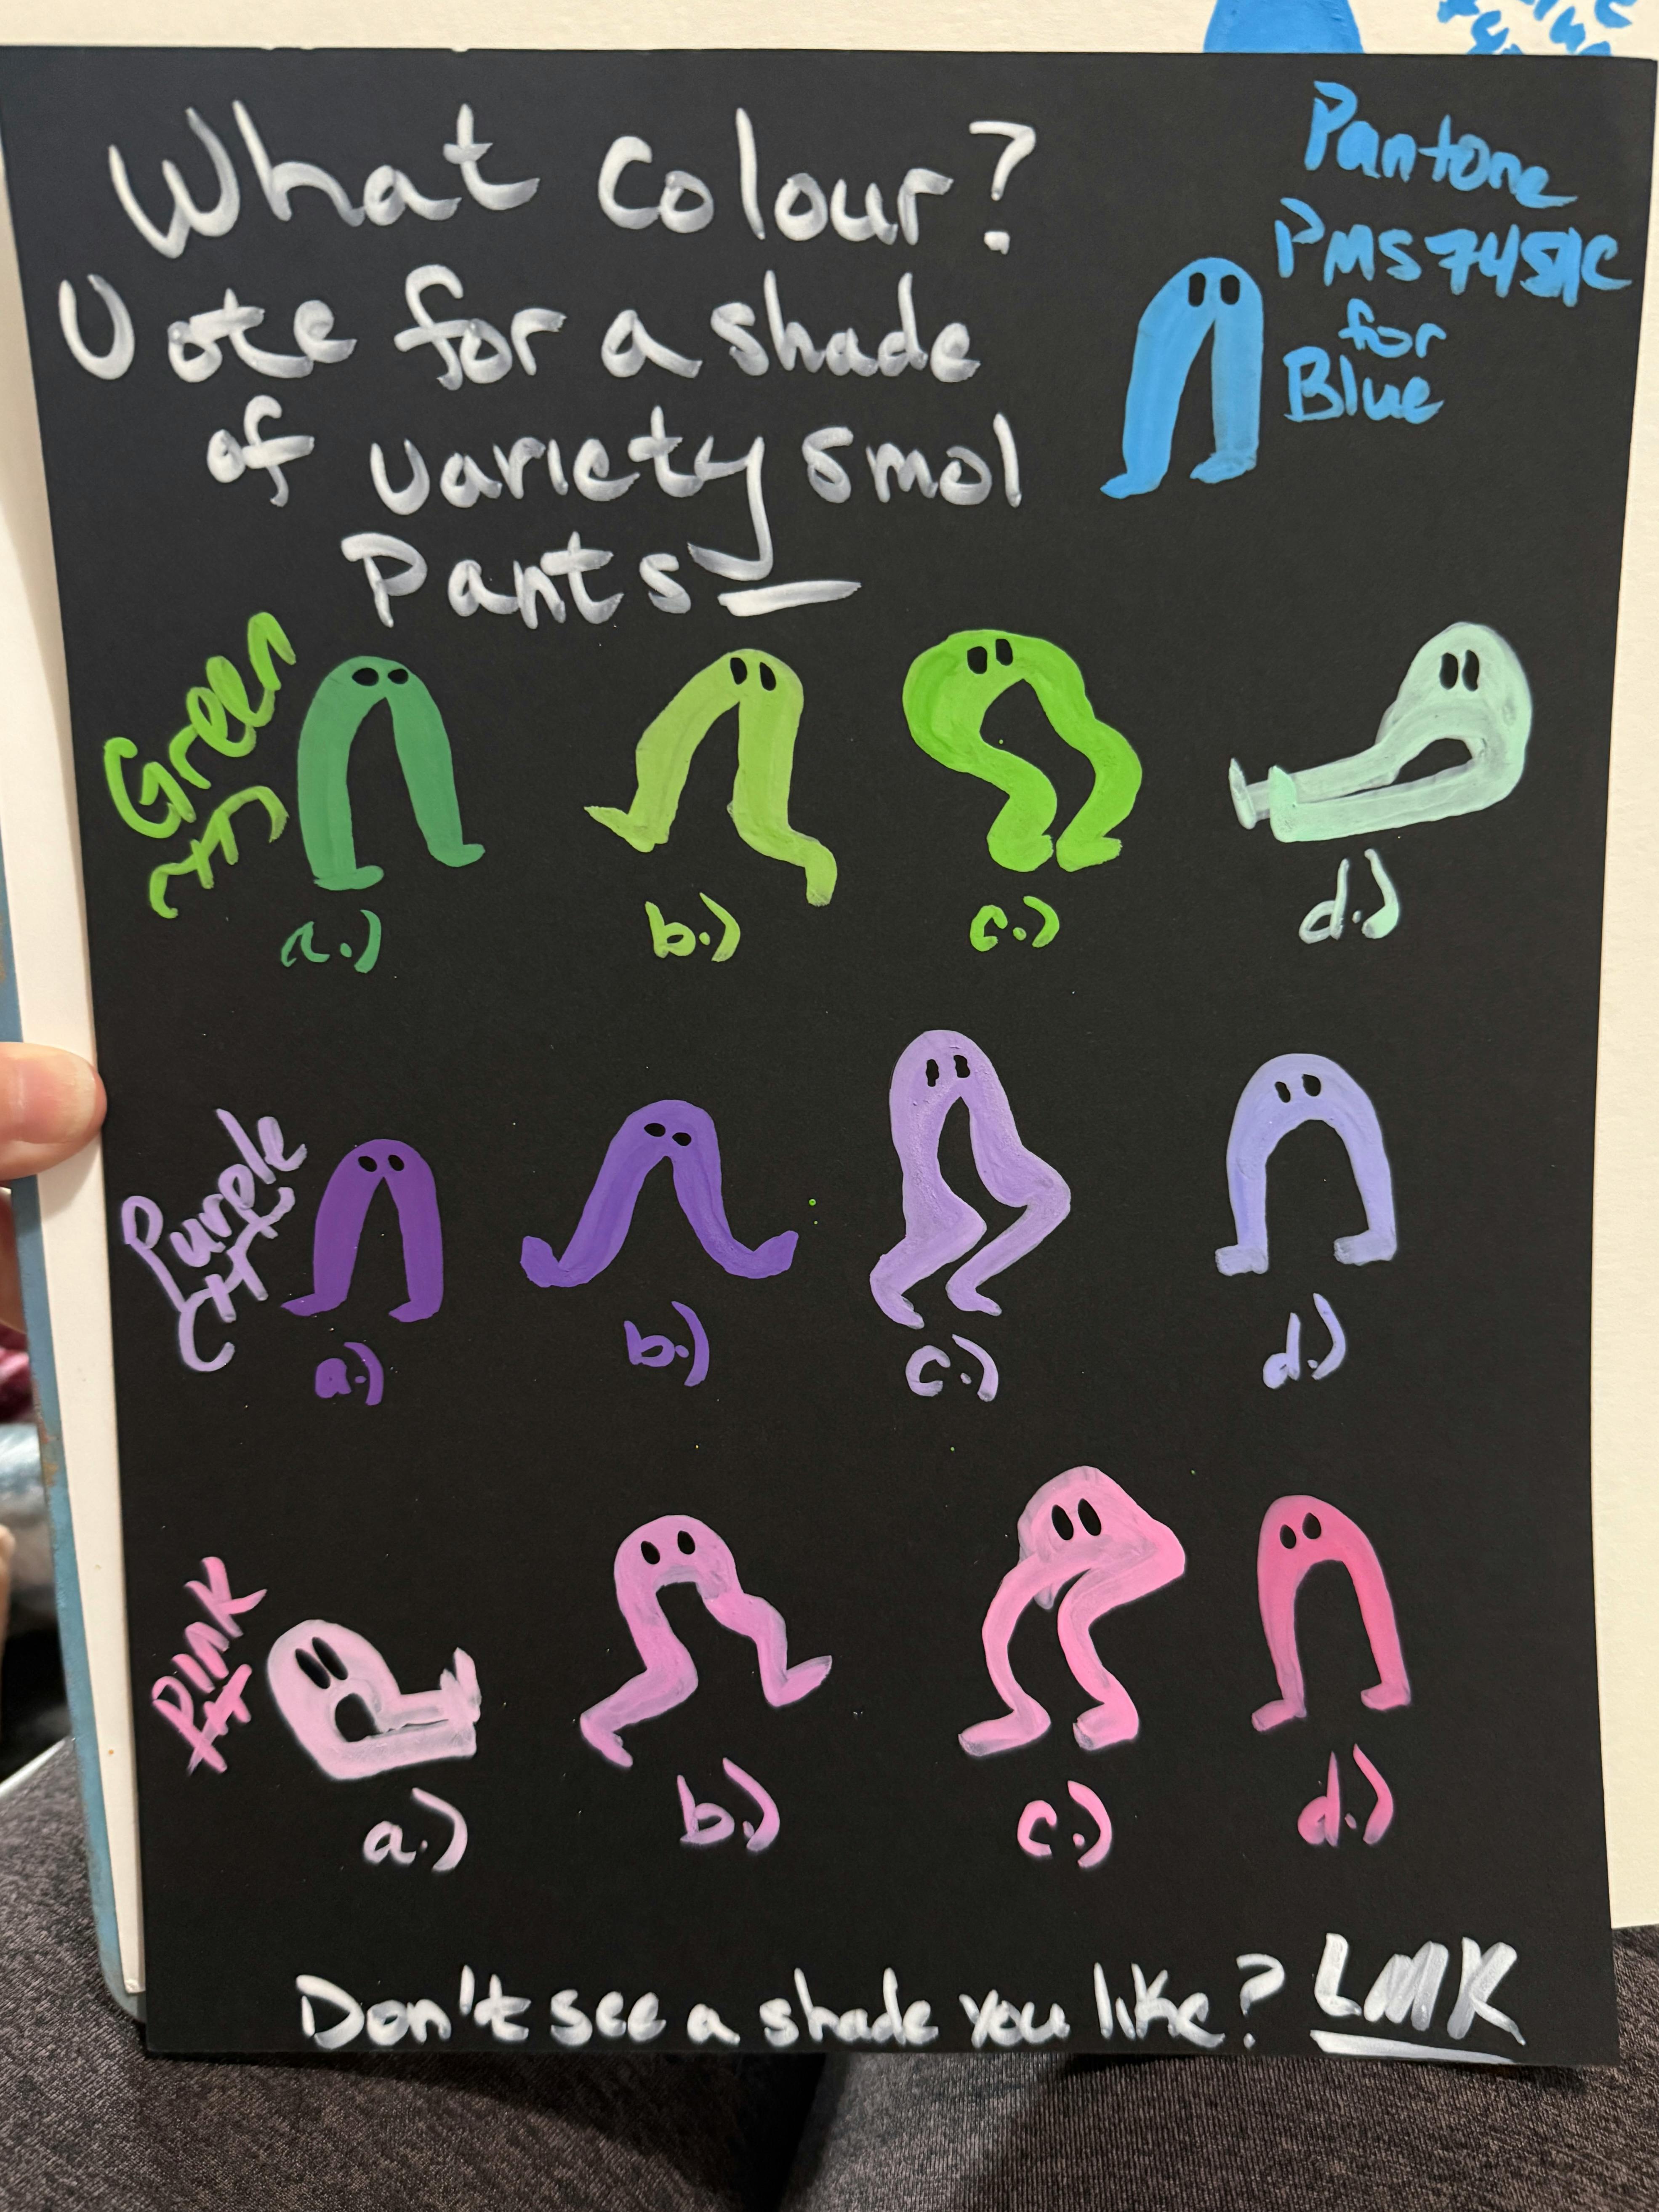 What colour?
Vote for a shade
of variety smol
Pants
Pantone
for
Blue
Green
a.)
b.)
c.)
d.)
Purple
a.)
b.)
c.)
d.)
Pink
a.)
b.)
c.)
d.)
Don't see a shade you like? LMK